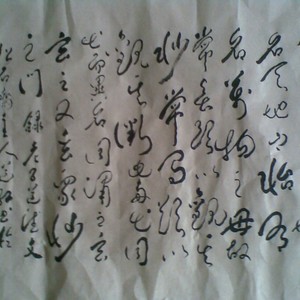 名天地之始有
名萬物之母故
常無欲以觀其
妙常有欲以
觀其徼此兩者同
出而異名同謂之玄
玄之又玄衆妙
之門錄老子道德文